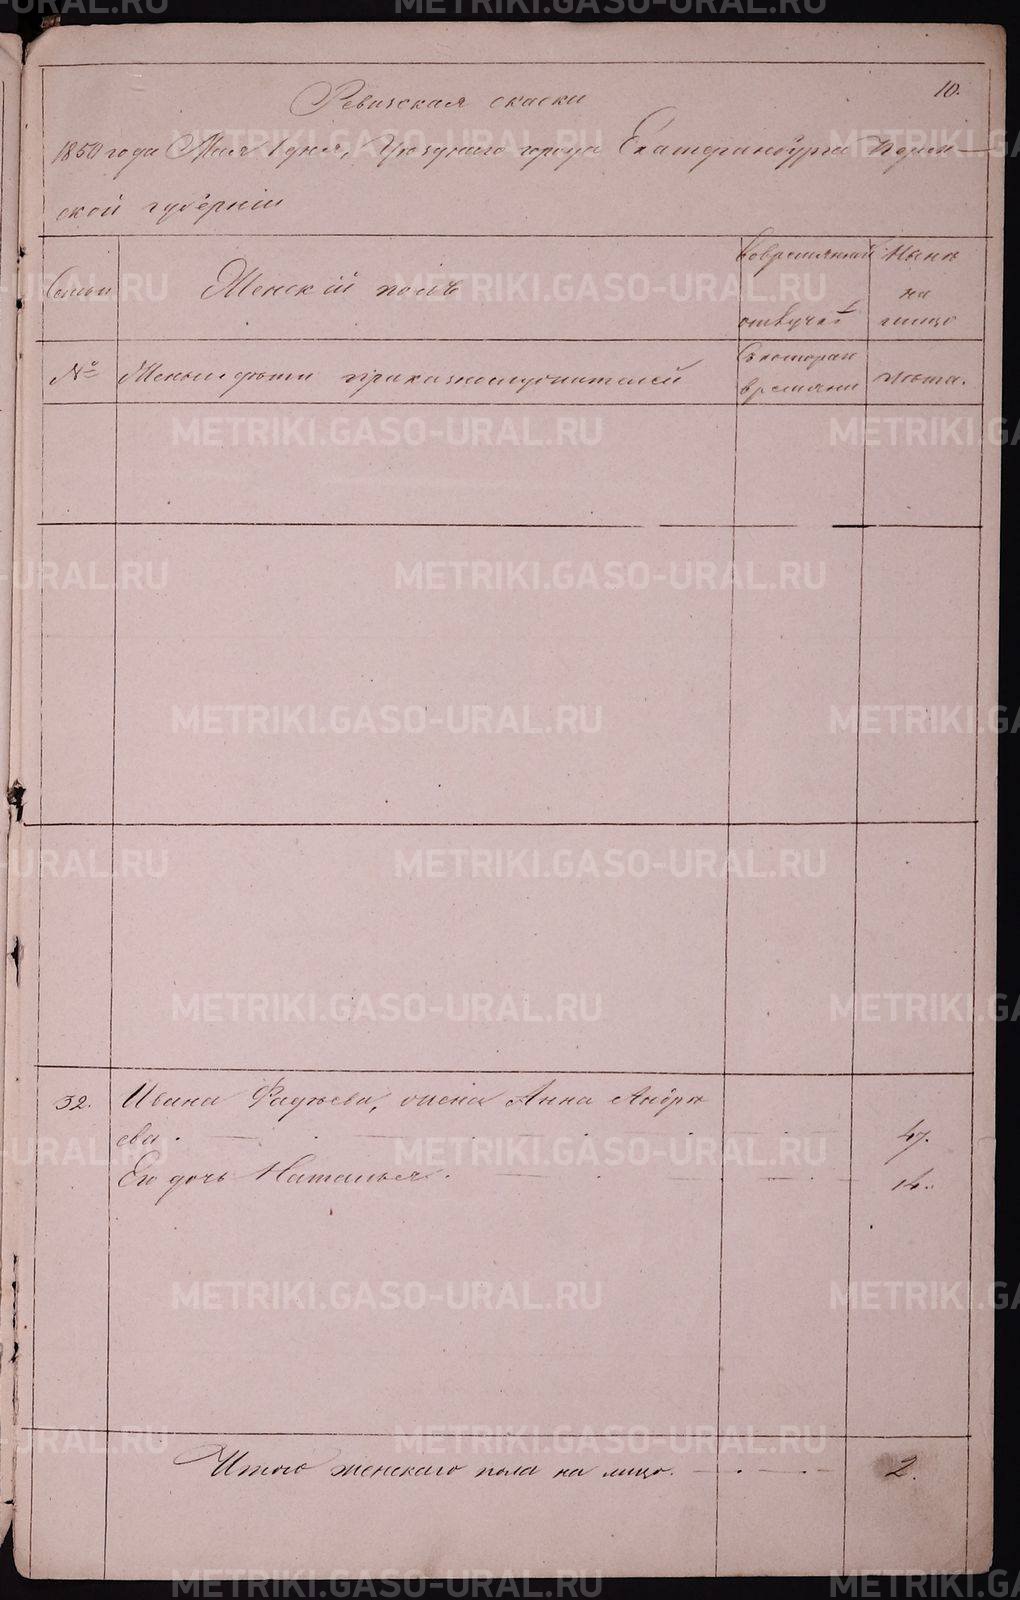 10.
Ревизская сказка
1850 года Мая 1 дня, Уезднаго города Екатеринбурга Перм-
ской губерніи
Семьи
Женскій полъ
Вовремянной
отлучкѣ
Нынѣ
на
лицо
№
Жены и дѣти приказнослужителей
Съкоторан
времяни
Лѣта.
32. Ивана Фадѣева, жена Анна Андрѣ
ева. 47.
Его дочь Наталья. 14.
Итого женскаго пола на лицо. 2.
METRIKI.GASO-URAL.RU